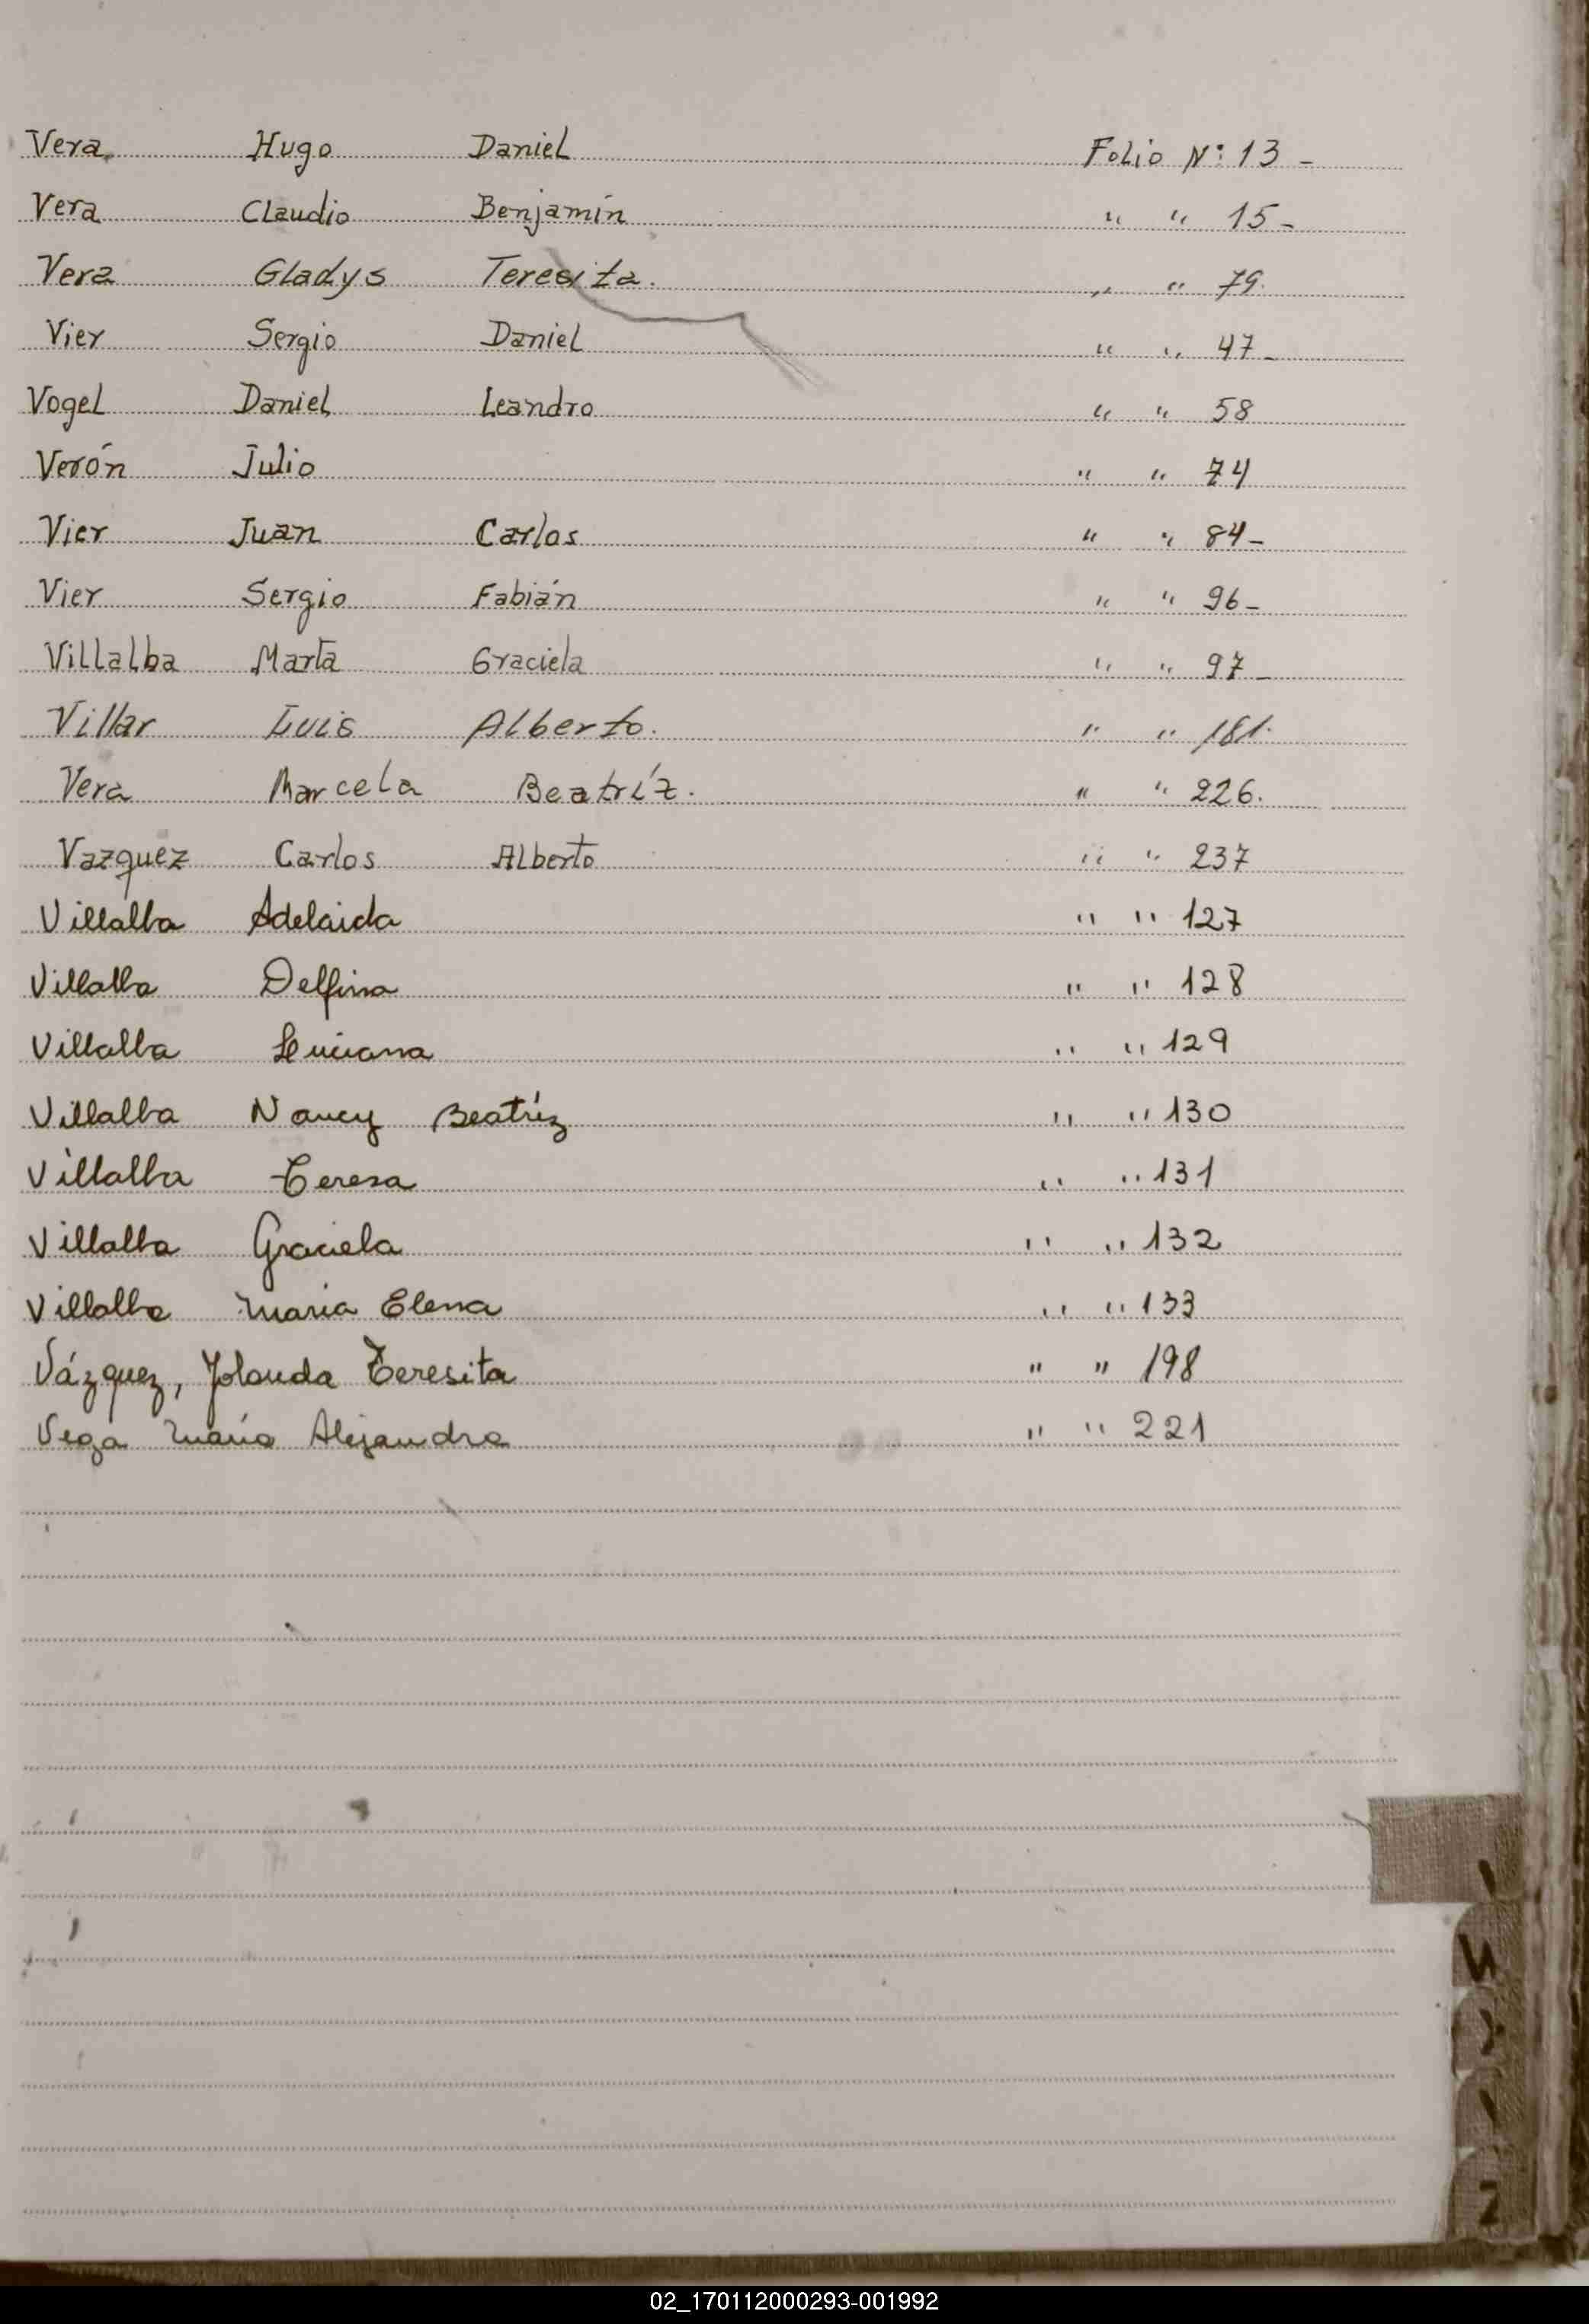 Vera Hugo Daniel Folio Nº: 13 -
Vera Claudio Benjamín " " 15 -
Vera Gladys Teresita. " " 79.
Vier Sergio Daniel " " 47 -
Vogel Daniel Leandro " " 58
Verón Julio " " 74
Vier Juan Carlos " " 84 -
Vier Sergio Fabián " " 96 -
Villalba Marta Graciela " " 97 -
Villar Luis Alberto. " " 181.
Vera Marcela Beatríz. " " 226.
Vazquez Carlos Alberto " " 237
Villalba Adelaida " " 127
Villalba Delfina " " 128
Villalba Luciana " " 129
Villalba Nancy Beatríz " " 130
Villalba Teresa " " 131
Villalba Graciela " " 132
Villalba María Elena " " 133
Vázquez, Yolanda Teresita " " 198
Vega María Alejandra " " 221
Z
02_170112000293-001992